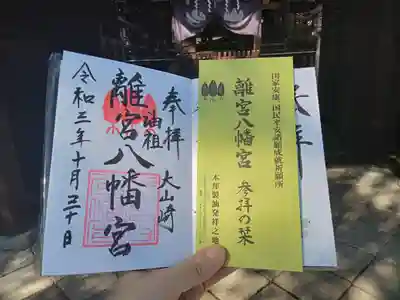 奉拝
大山崎
油祖
離宮八幡宮
令和三年十月三十日
国家安康、国民平安諸願成就祈願所
離宮八幡宮 参拝の栞
本邦製油発祥之地